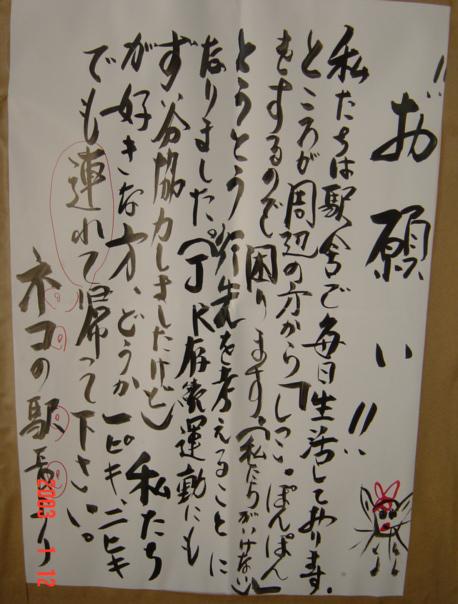 お願い!!
私たちは駅舎で毎日生活しております。
ところが周辺の方から「しっこ。ぽんぽん
をするので困ります。(私たちがいけない)」
とうとう行先を考えることに
なりました。(JR存続運動にも
ずい分協力しましたけど)私たち
が好きな方、どうか一ピキ、二ヒキ
でも連れて帰って下さい。
ネコの駅長より
2003 1 12